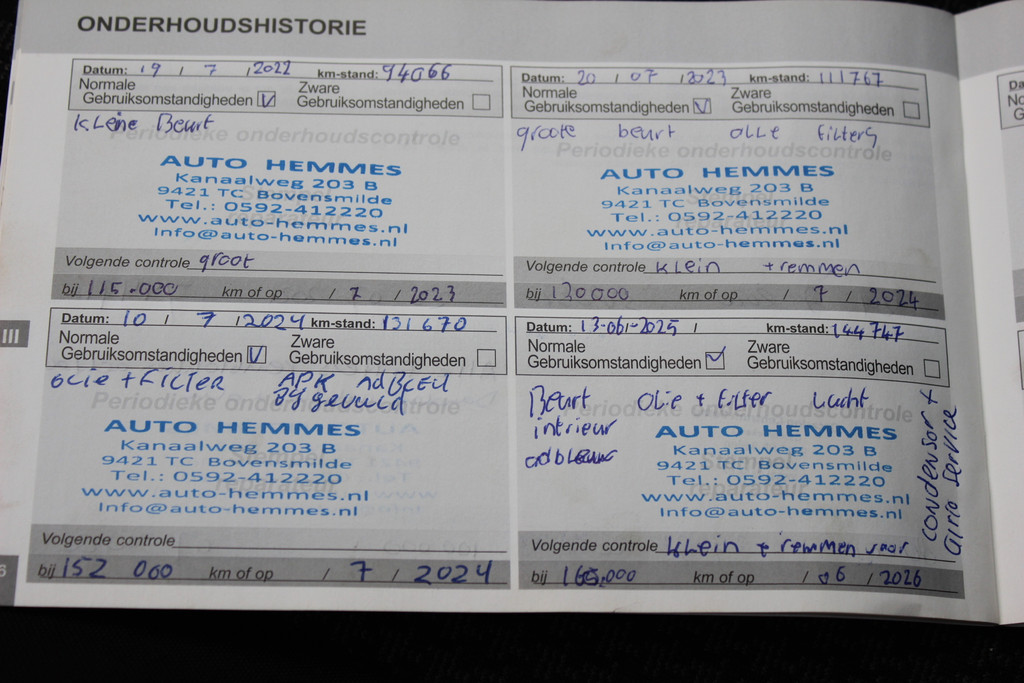 ONDERHOUDSHISTORIE
Datum: 19 / 7 / 2022 km-stand: 94066
Normale
Gebruiksomstandigheden
Zware
Gebruiksomstandigheden
Kleine Beurt
Periodieke onderhoudscontrole
AUTO HEMMES
Kanaalweg 203 B
9421 TC Bovensmilde
Tel.: 0592-412220
www.auto-hemmes.nl
Info@auto-hemmes.nl
Volgende controle groot
bij 115.000 km of op / 7 / 2023
Datum: 20 / 07 / 2023 km-stand: 111767
Normale
Gebruiksomstandigheden
Zware
Gebruiksomstandigheden
groote beurt olle filters
Periodieke onderhoudscontrole
AUTO HEMMES
Kanaalweg 203 B
9421 TC Bovensmilde
Tel.: 0592-412220
www.auto-hemmes.nl
Info@auto-hemmes.nl
Volgende controle klein + remmen
bij 130000 km of op / 7 / 2024
III
Datum: 10 / 7 / 2024 km-stand: 131670
Normale
Gebruiksomstandigheden
Zware
Gebruiksomstandigheden
olie + filter APK AdBleu
Bijgevuld
Periodieke onderhoudscontrole
AUTO HEMMES
Kanaalweg 203 B
9421 TC Bovensmilde
Tel.: 0592-412220
www.auto-hemmes.nl
Info@auto-hemmes.nl
Volgende controle
bij 152 000 km of op / 7 / 2024
Datum: 13-06-2025 / km-stand: 144747
Normale
Gebruiksomstandigheden
Zware
Gebruiksomstandigheden
Beurt olie + filter Lucht
Periodieke onderhoudscontrole
interieur
adbleuw
AUTO HEMMES
Kanaalweg 203 B
9421 TC Bovensmilde
Tel.: 0592-412220
www.auto-hemmes.nl
Info@auto-hemmes.nl
condensor +
airco service
Volgende controle klein + remmen voor
bij 165.000 km of op / 06 / 2026